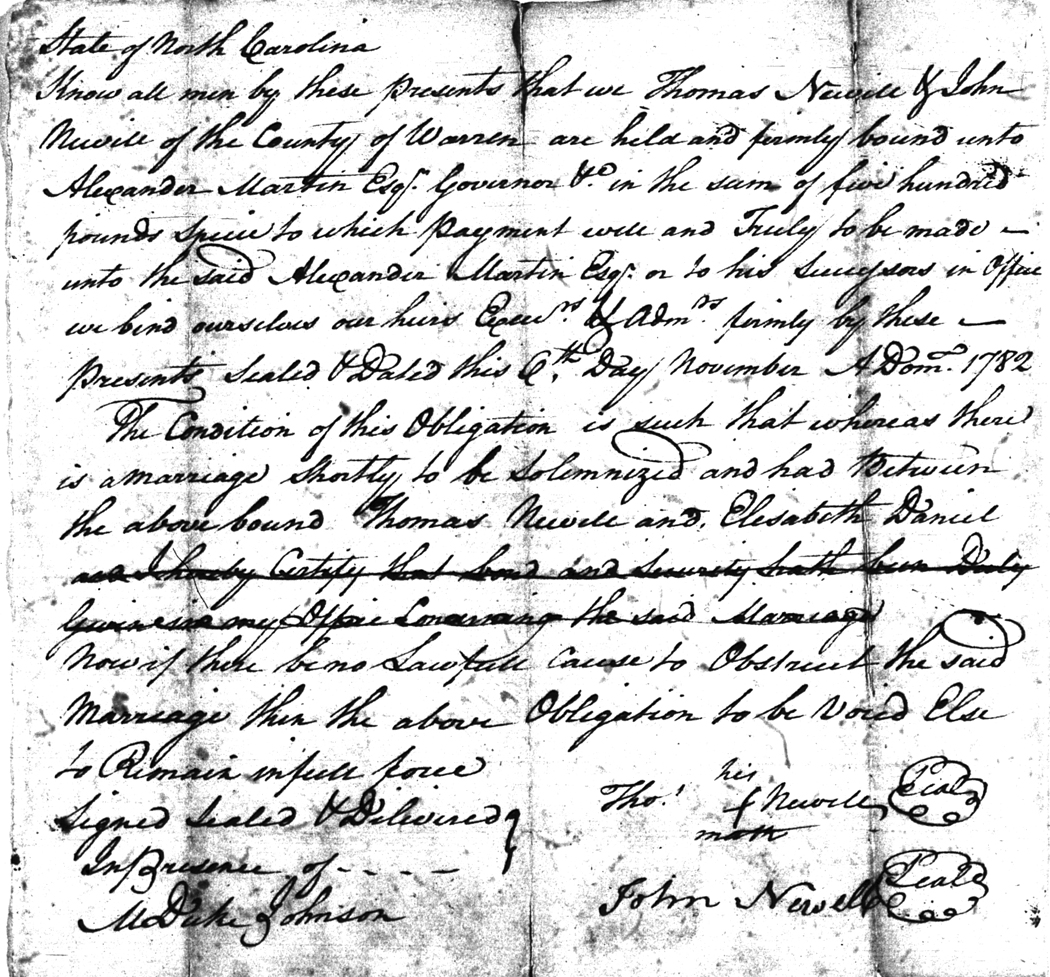 State of North Carolina
Know all men by these presents that we Thomas Newill & John
Newill of the County of Warren are held and firmly bound unto
Alexander Martin Esqr. Governor &c. in the sum of five hundred
pounds Specie to which payment will and Truly to be made —
unto the said Alexander Martin Esqr. or to his Successors in Office
we bind ourselves our heirs Execurs. & Admrs. firmly by these —
presents Sealed & Dated this 6th. Day November A Dom. 1782
The Condition of this Obligation is such that whereas there
is a marriage Shortly to be Solemnized and had Between
the above bound Thomas Newill and Elisabeth Daniel
and I hereby Certify that bond and Security hath been Duly
Given in my Office Concerning the said Marriage
Now if there be no Lawfull Cause to Obstruct the said
Marriage then the above Obligation to be Voied Else
to Remain in full force
Signed Sealed & Delivered
In Presence of - - - -
McDuke Johnson
his
Thos. Newill Seal
mark
John Newell Seal